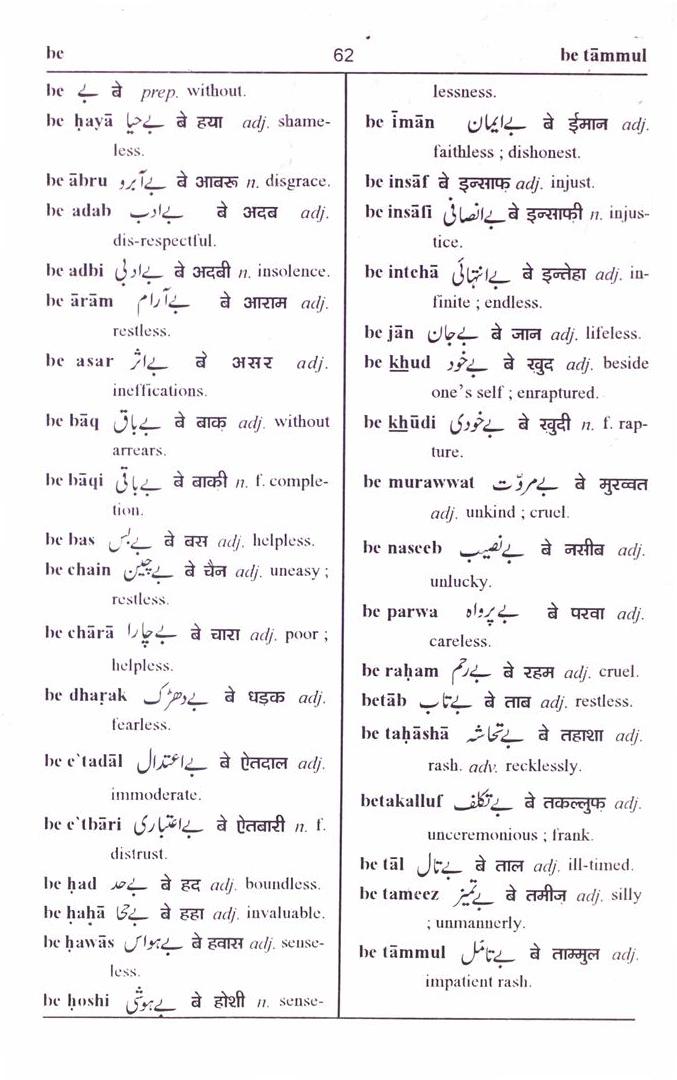 be 62 be tāmmul
be بے बे prep. without.
be ḥayā بے حیا बे हया adj. shame-
less.
be ābru بے آبرو बे आबरू n. disgrace.
be adab بے ادب बे अदब adj.
dis-respectful.
be adbi بے ادبی बे अदबी n. insolence.
be ārām بے آرام बे आराम adj.
restless.
be asar بے اثر बे असर adj.
ineffications.
be bāq بے باق बे बाक़ adj. without
arrears.
be bāqi بے باقی बे बाकी n. f. comple-
tion.
be bas بے بس बे बस adj. helpless.
be chain بے چین बे चैन adj. uneasy ;
restless.
be chārā بے چارا बे चारा adj. poor ;
helpless.
be dhaṛak بے دھڑک बे धड़क adj.
fearless.
be e`tadāl بے اعتدال बे ऐतदाल adj.
immoderate.
be e`tbāri بے اعتباری बे ऐतबारी n. f.
distrust.
be ḥad بے حد बे हद adj. boundless.
be ḥahā बे हहा adj. invaluable.
be ḥawās بے ہواس बे हवास adj. sense-
less.
be ḥoshi بے ہوشی बे होशी n. sense-
lessness.
be īmān بے ایمان बे ईमान adj.
faithless ; dishonest.
be insāf बे इन्साफ़ adj. injust.
be insāfi بے انصافی बे इन्साफ़ी n. injus-
tice.
be intehā بے انتہائی बे इन्तेहा adj. in-
finite ; endless.
be jān بے جان बे जान adj. lifeless.
be khud بے خود बे ख़ुद adj. beside
one's self ; enraptured.
be khūdi بے خودی बे ख़ुदी n. f. rap-
ture.
be murawwat بے مروّت बे मुरव्वत
adj. unkind ; cruel.
be naseeb بے نصیب बे नसीब adj.
unlucky.
be parwa بے پرواہ बे परवा adj.
careless.
be raḥam بے رحم बे रहम adj. cruel.
betāb بے تاب बे ताब adj. restless.
be taḥāshā بے تحاشہ बे तहाशा adj.
rash. adv. recklessly.
betakalluf بے تکلف बे तकल्लुफ़ adj.
unceremonious ; frank.
be tāl بے تال बे ताल adj. ill-timed.
be tameez بے تمیز बे तमीज़ adj. silly
; unmannerly.
be tāmmul بے تامّل बे ताम्मुल adj.
impatient rash.